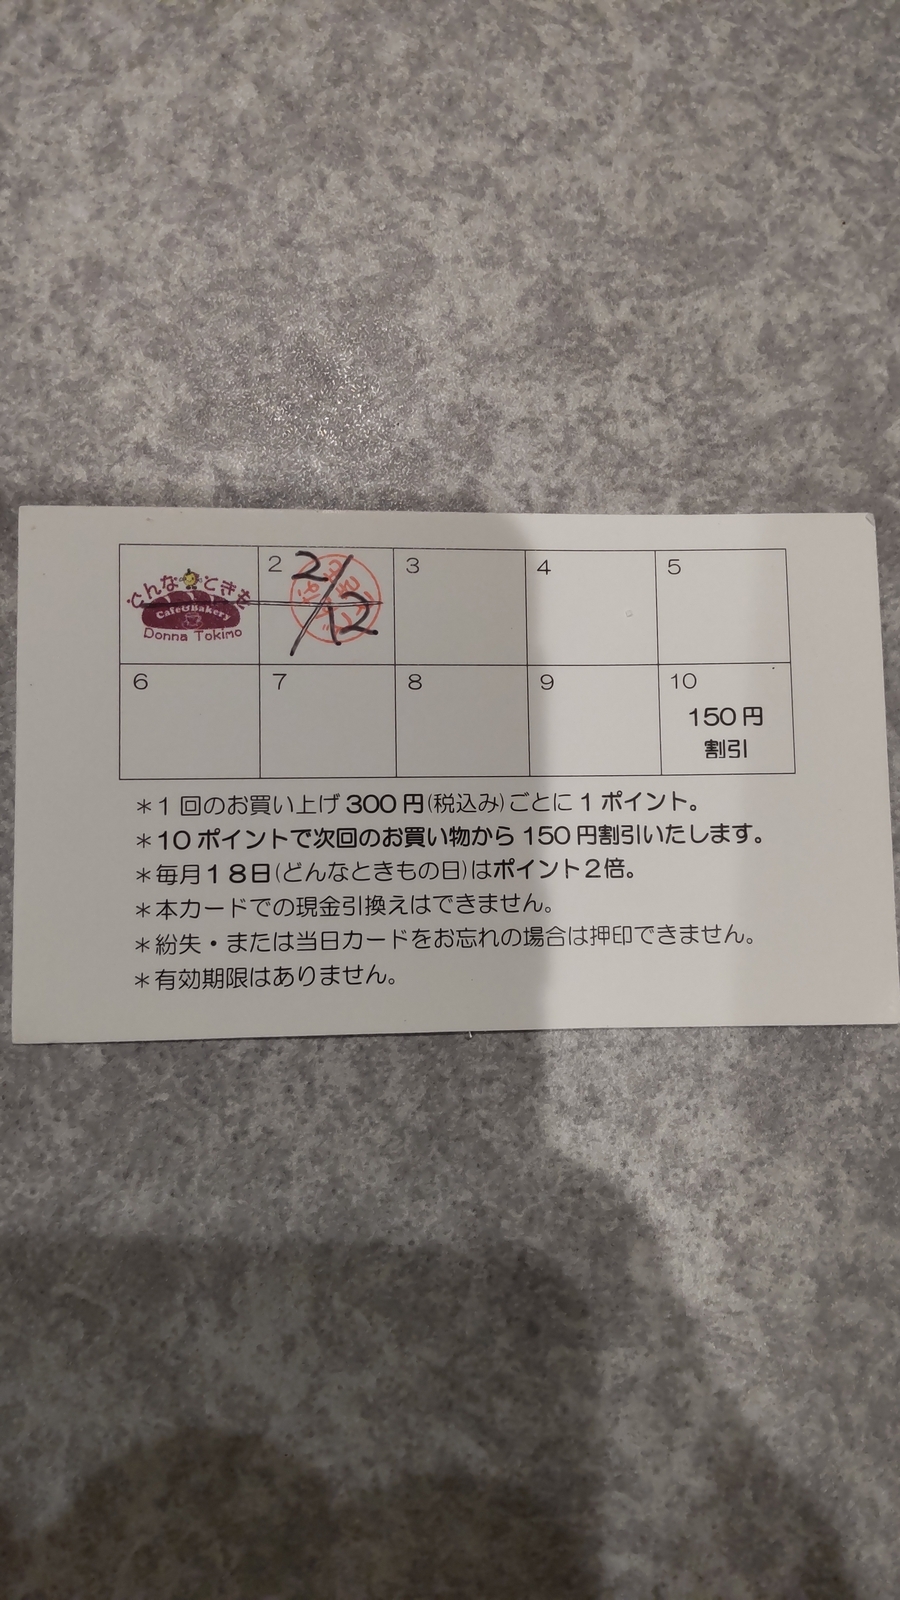 どんなときも
Cafe&Bakery
Donna Tokimo
2 2/12 3 4 5
6 7 8 9 10
150円
割引
＊1回のお買い上げ300円(税込み)ごとに1ポイント。
＊10ポイントで次回のお買い物から150円割引いたします。
＊毎月18日(どんなときもの日)はポイント2倍。
＊本カードでの現金引換えはできません。
＊紛失・または当日カードをお忘れの場合は押印できません。
＊有効期限はありません。